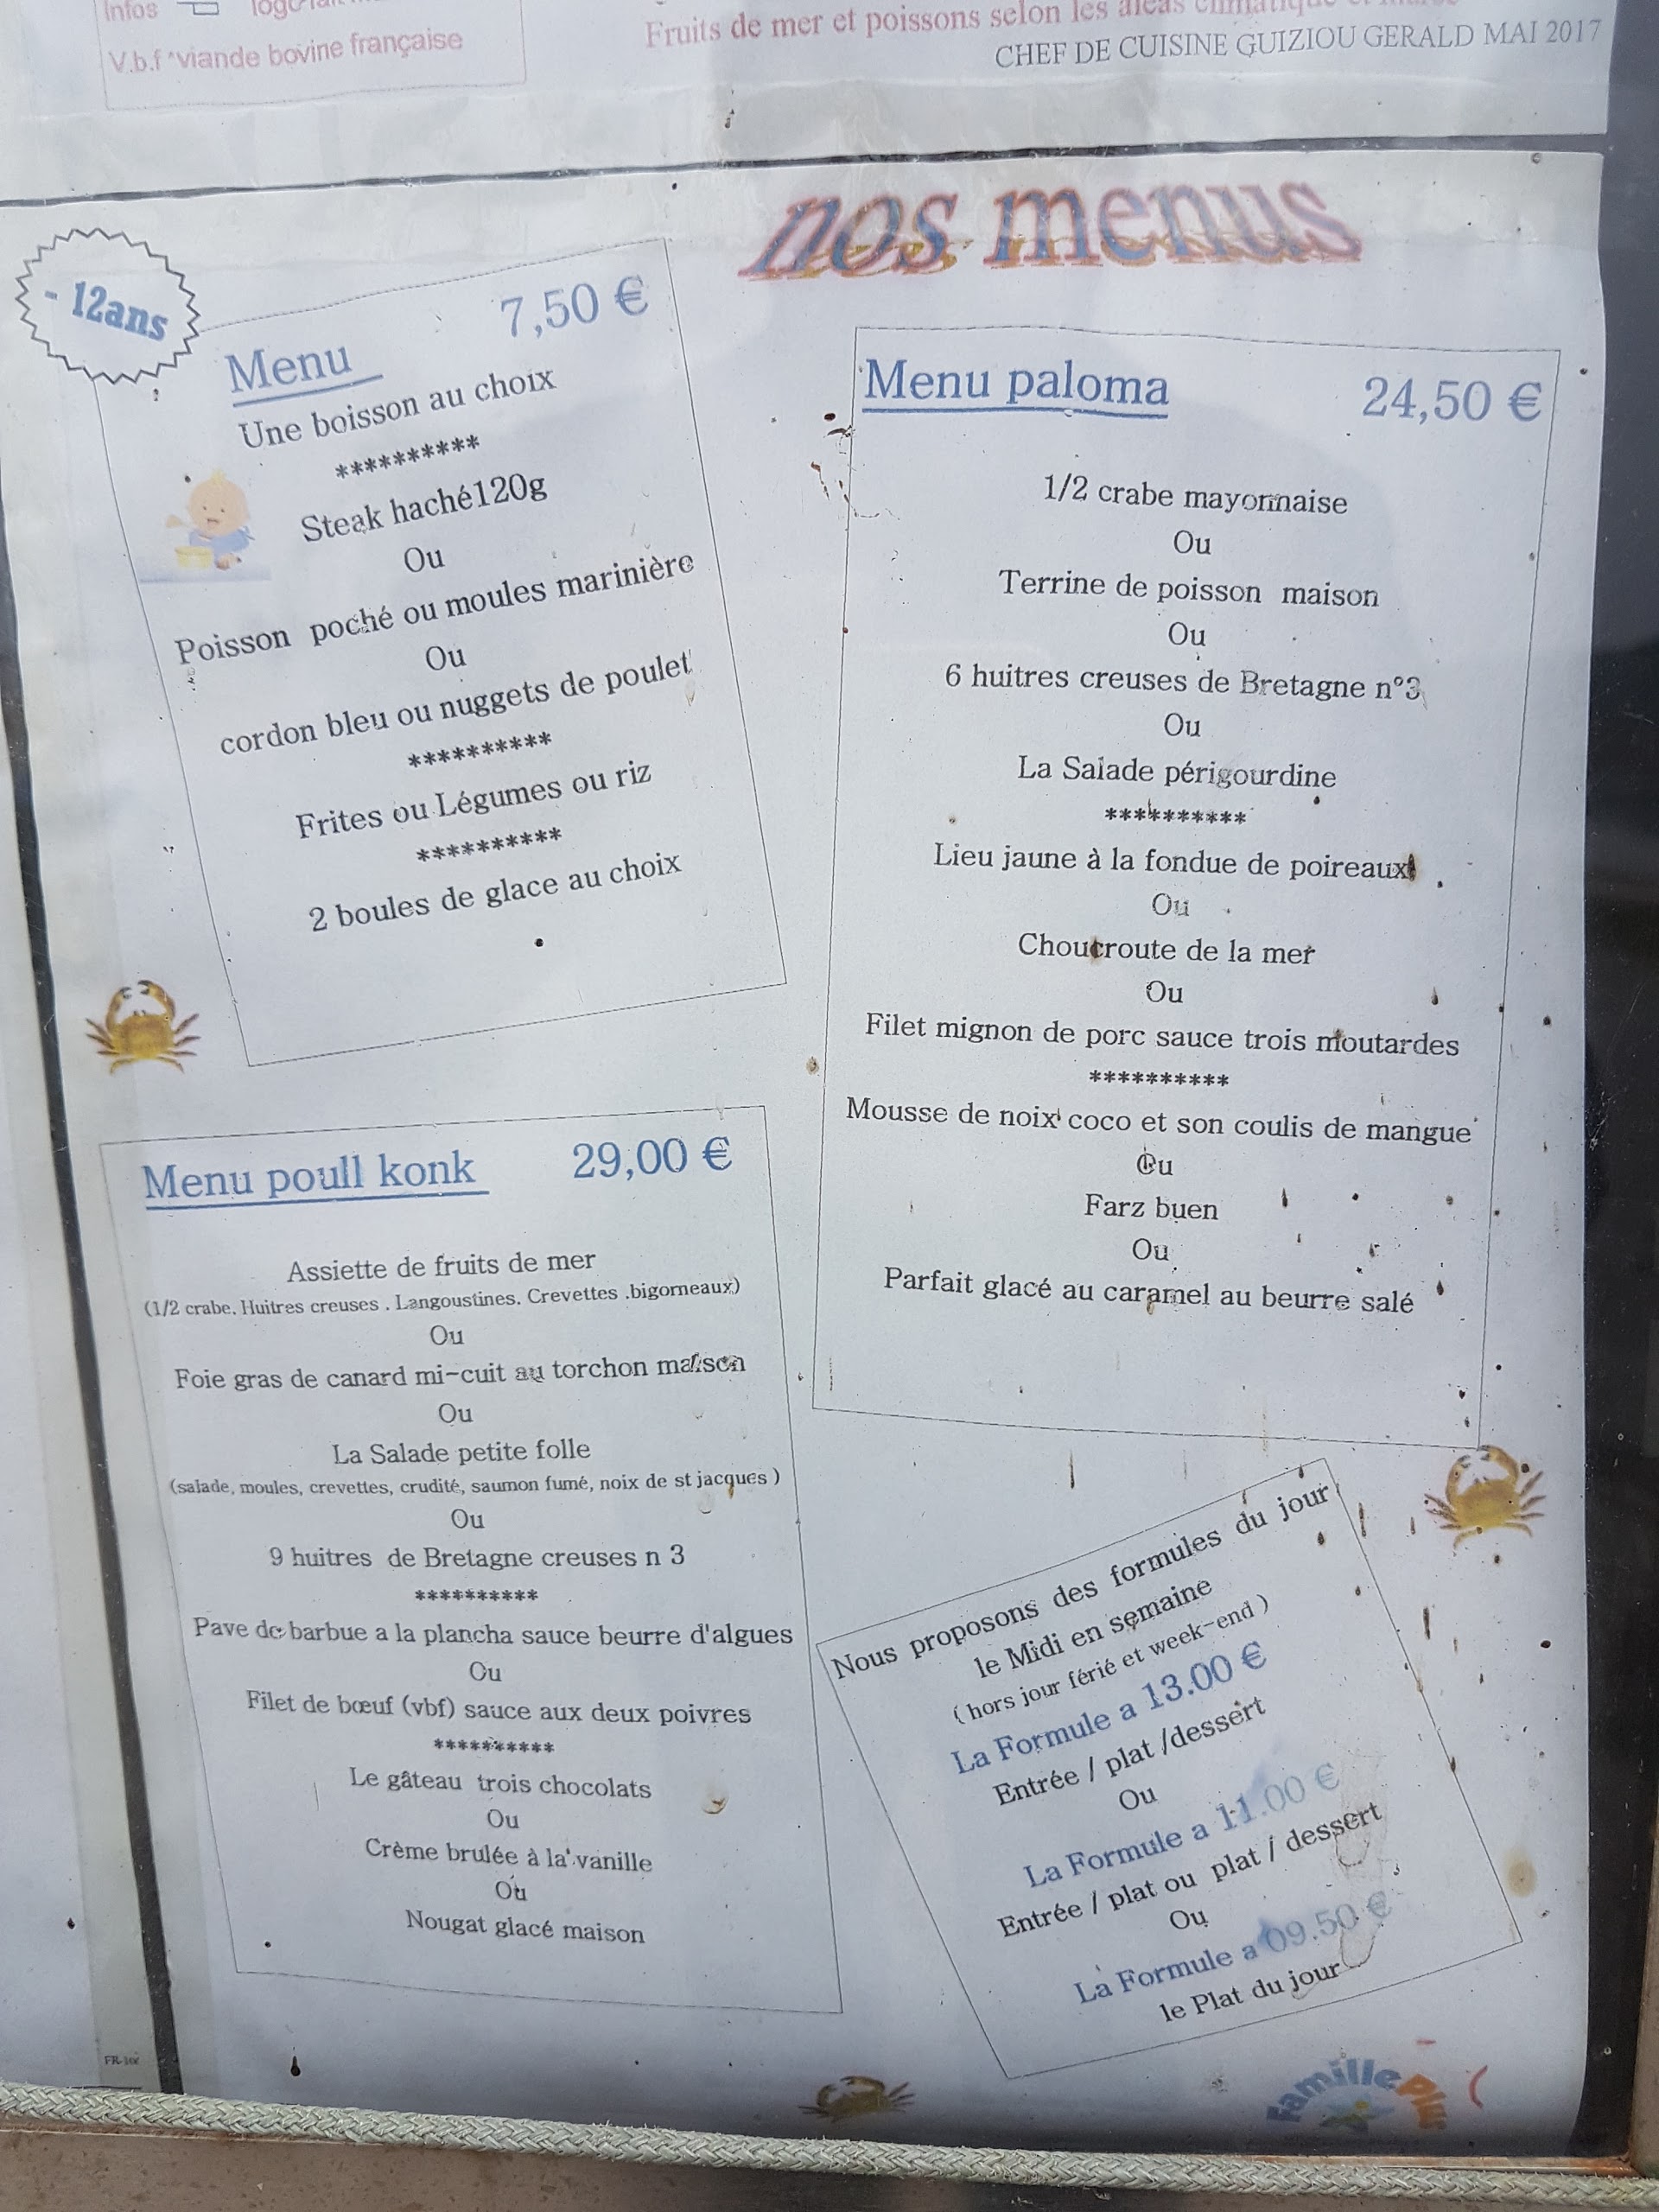 Infos
V.b.f *viande bovine française
Fruits de mer et poissons selon les aléas
CHEF DE CUISINE GUIZIOU GERALD MAI 2017
nos menus
- 12ans
Menu 7,50 €
Une boisson au choix
**********
Steak haché120g
Ou
Poisson poché ou moules marinière
Ou
cordon bleu ou nuggets de poulet
**********
Frites ou Légumes ou riz
**********
2 boules de glace au choix
Menu paloma 24,50 €
1/2 crabe mayonnaise
Ou
Terrine de poisson maison
Ou
6 huitres creuses de Bretagne n°3
Ou
La Salade périgourdine
**********
Lieu jaune à la fondue de poireaux
Ou
Choucroute de la mer
Ou
Filet mignon de porc sauce trois moutardes
**********
Mousse de noix coco et son coulis de mangue
Ou
Farz buen
Ou
Parfait glacé au caramel au beurre salé
Menu poull konk 29,00 €
Assiette de fruits de mer
(1/2 crabe. Huitres creuses . Langoustines. Crevettes .bigorneaux)
Ou
Foie gras de canard mi-cuit au torchon maison
Ou
La Salade petite folle
(salade, moules, crevettes, crudité, saumon fumé, noix de st jacques )
Ou
9 huitres de Bretagne creuses n 3
**********
Pave de barbue a la plancha sauce beurre d'algues
Ou
Filet de bœuf (vbf) sauce aux deux poivres
**********
Le gâteau trois chocolats
Ou
Crème brulée à la vanille
Ou
Nougat glacé maison
Nous proposons des formules du jour
le Midi en semaine
( hors jour férié et week-end )
La Formule a 13.00 €
Entrée / plat /dessert
Ou
La Formule a 11.00 €
Entrée / plat ou plat / dessert
Ou
La Formule a 09.50 €
le Plat du jour
Famille Plus